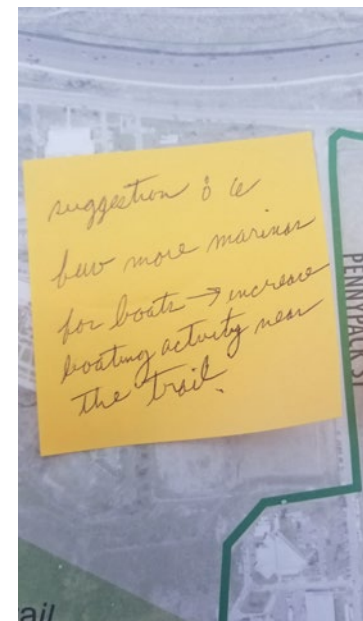 suggestion : a
few more marinas
for boats → increase
boating activity near
the trail.
PENNYPACK ST
ail